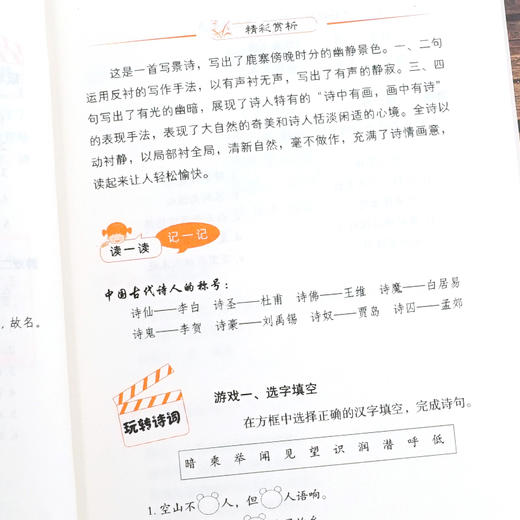 精彩赏析
这是一首写景诗，写出了鹿寨傍晚时分的幽静景色。一、二句
运用反衬的写作手法，以有声衬无声，写出了有声的静寂。三、四
句写出了有光的幽暗，展现了诗人特有的“诗中有画，画中有诗”
的表现手法，表现了大自然的奇美和诗人恬淡闲适的心境。全诗以
动衬静，以局部衬全局，清新自然，毫不做作，充满了诗情画意，
读起来让人轻松愉快。
读一读 记一记
中国古代诗人的称号：
诗仙——李白 诗圣——杜甫 诗佛——王维 诗魔——白居易
诗鬼——李贺 诗豪——刘禹锡 诗奴——贾岛 诗囚——孟郊
，故名。
玩转诗词
游戏一、选字填空
在方框中选择正确的汉字填空，完成诗句。
暗 乘 举 闻 见 望 识 润 潜 呼 低
1. 空山不 人，但 人语响。